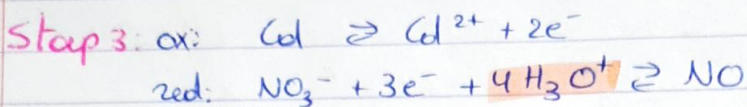 Stap 3: ox: Cd ⇌ Cd²⁺ + 2e⁻
red: NO₃⁻ + 3e⁻ + 4H₃O⁺ ⇌ NO